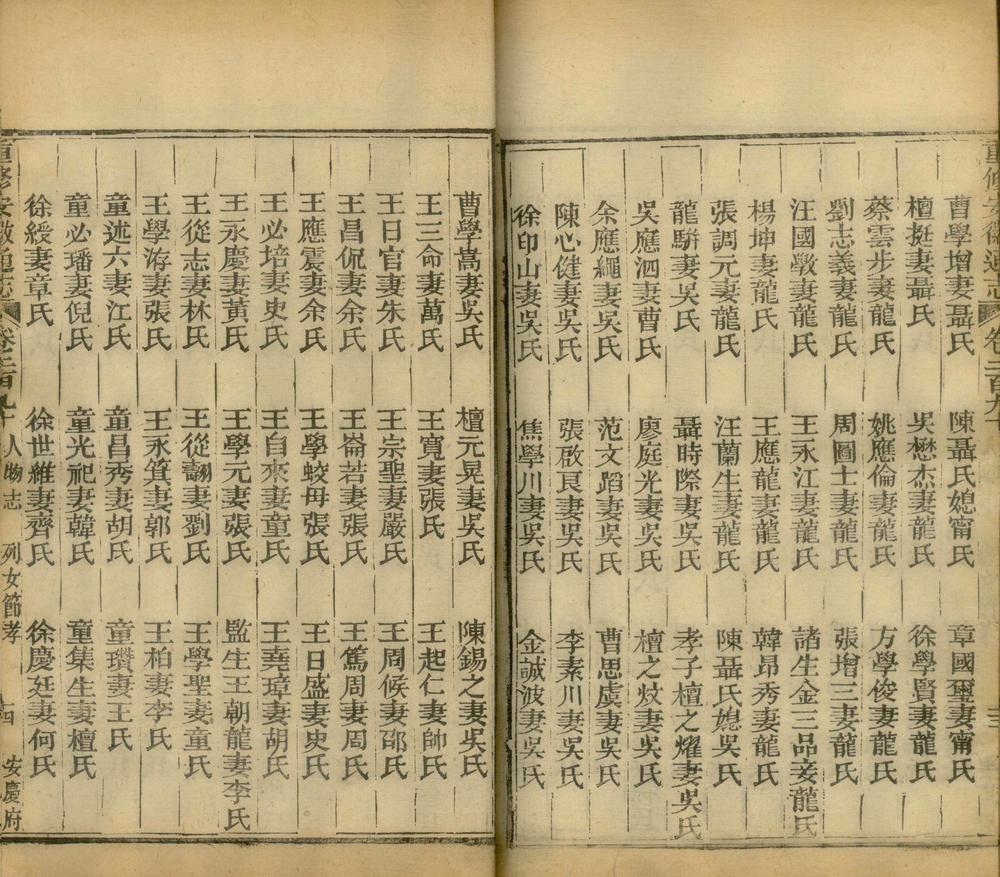 重修安徽通志 卷二百九十
曹學增妻聶氏 陳聶氏媳甯氏 章國璽妻甯氏
檀挺妻聶氏 吳懋杰妻龍氏 徐學賢妻龍氏
蔡雲步妻龍氏 姚應倫妻龍氏 方學俊妻龍氏
劉志義妻龍氏 周圖士妻龍氏 張增三妻龍氏
汪國斆妻龍氏 王永江妻龍氏 諸生金三品妾龍氏
楊坤妻龍氏 王應龍妻龍氏 韓昂秀妻龍氏
張調元妻龍氏 汪蘭生妻龍氏 陳聶氏媳吳氏
龍騈妻吳氏 聶時際妻吳氏 孝子檀之燿妻吳氏
吳應泗妻曹氏 廖庭光妻吳氏 檀之炆妻吳氏
余應繩妻吳氏 范文蹈妻吳氏 曹思虞妻吳氏
陳心健妻吳氏 張啟艮妻吳氏 李素川妻吳氏
徐印山妻吳氏 焦學川妻吳氏 金誠波妻吳氏
曹學嵩妻吳氏 檀元晃妻吳氏 陳錫之妻吳氏
王三命妻萬氏 王寬妻張氏 王起仁妻帥氏
王日官妻朱氏 王宗聖妻嚴氏 王周候妻邵氏
王昌侃妻余氏 王崙若妻張氏 王篤周妻周氏
王應震妻余氏 王學蛟母張氏 王日盛妻史氏
王必培妻史氏 王自來妻童氏 王堯璋妻胡氏
王永慶妻黃氏 王學元妻張氏 監生王朝龍妻李氏
王從志妻林氏 王從翻妻劉氏 王學聖妻童氏
王學游妻張氏 王永箕妻郭氏 王柏妻李氏
童述六妻江氏 童昌秀妻胡氏 童瓚妻王氏
童必璠妻倪氏 童光祀妻韓氏 童集生妻檀氏
徐綬妻章氏 徐世維妻齊氏 徐慶廷妻何氏
重修安徽通志 卷二百九十 人物志 列女節孝 四 安慶府